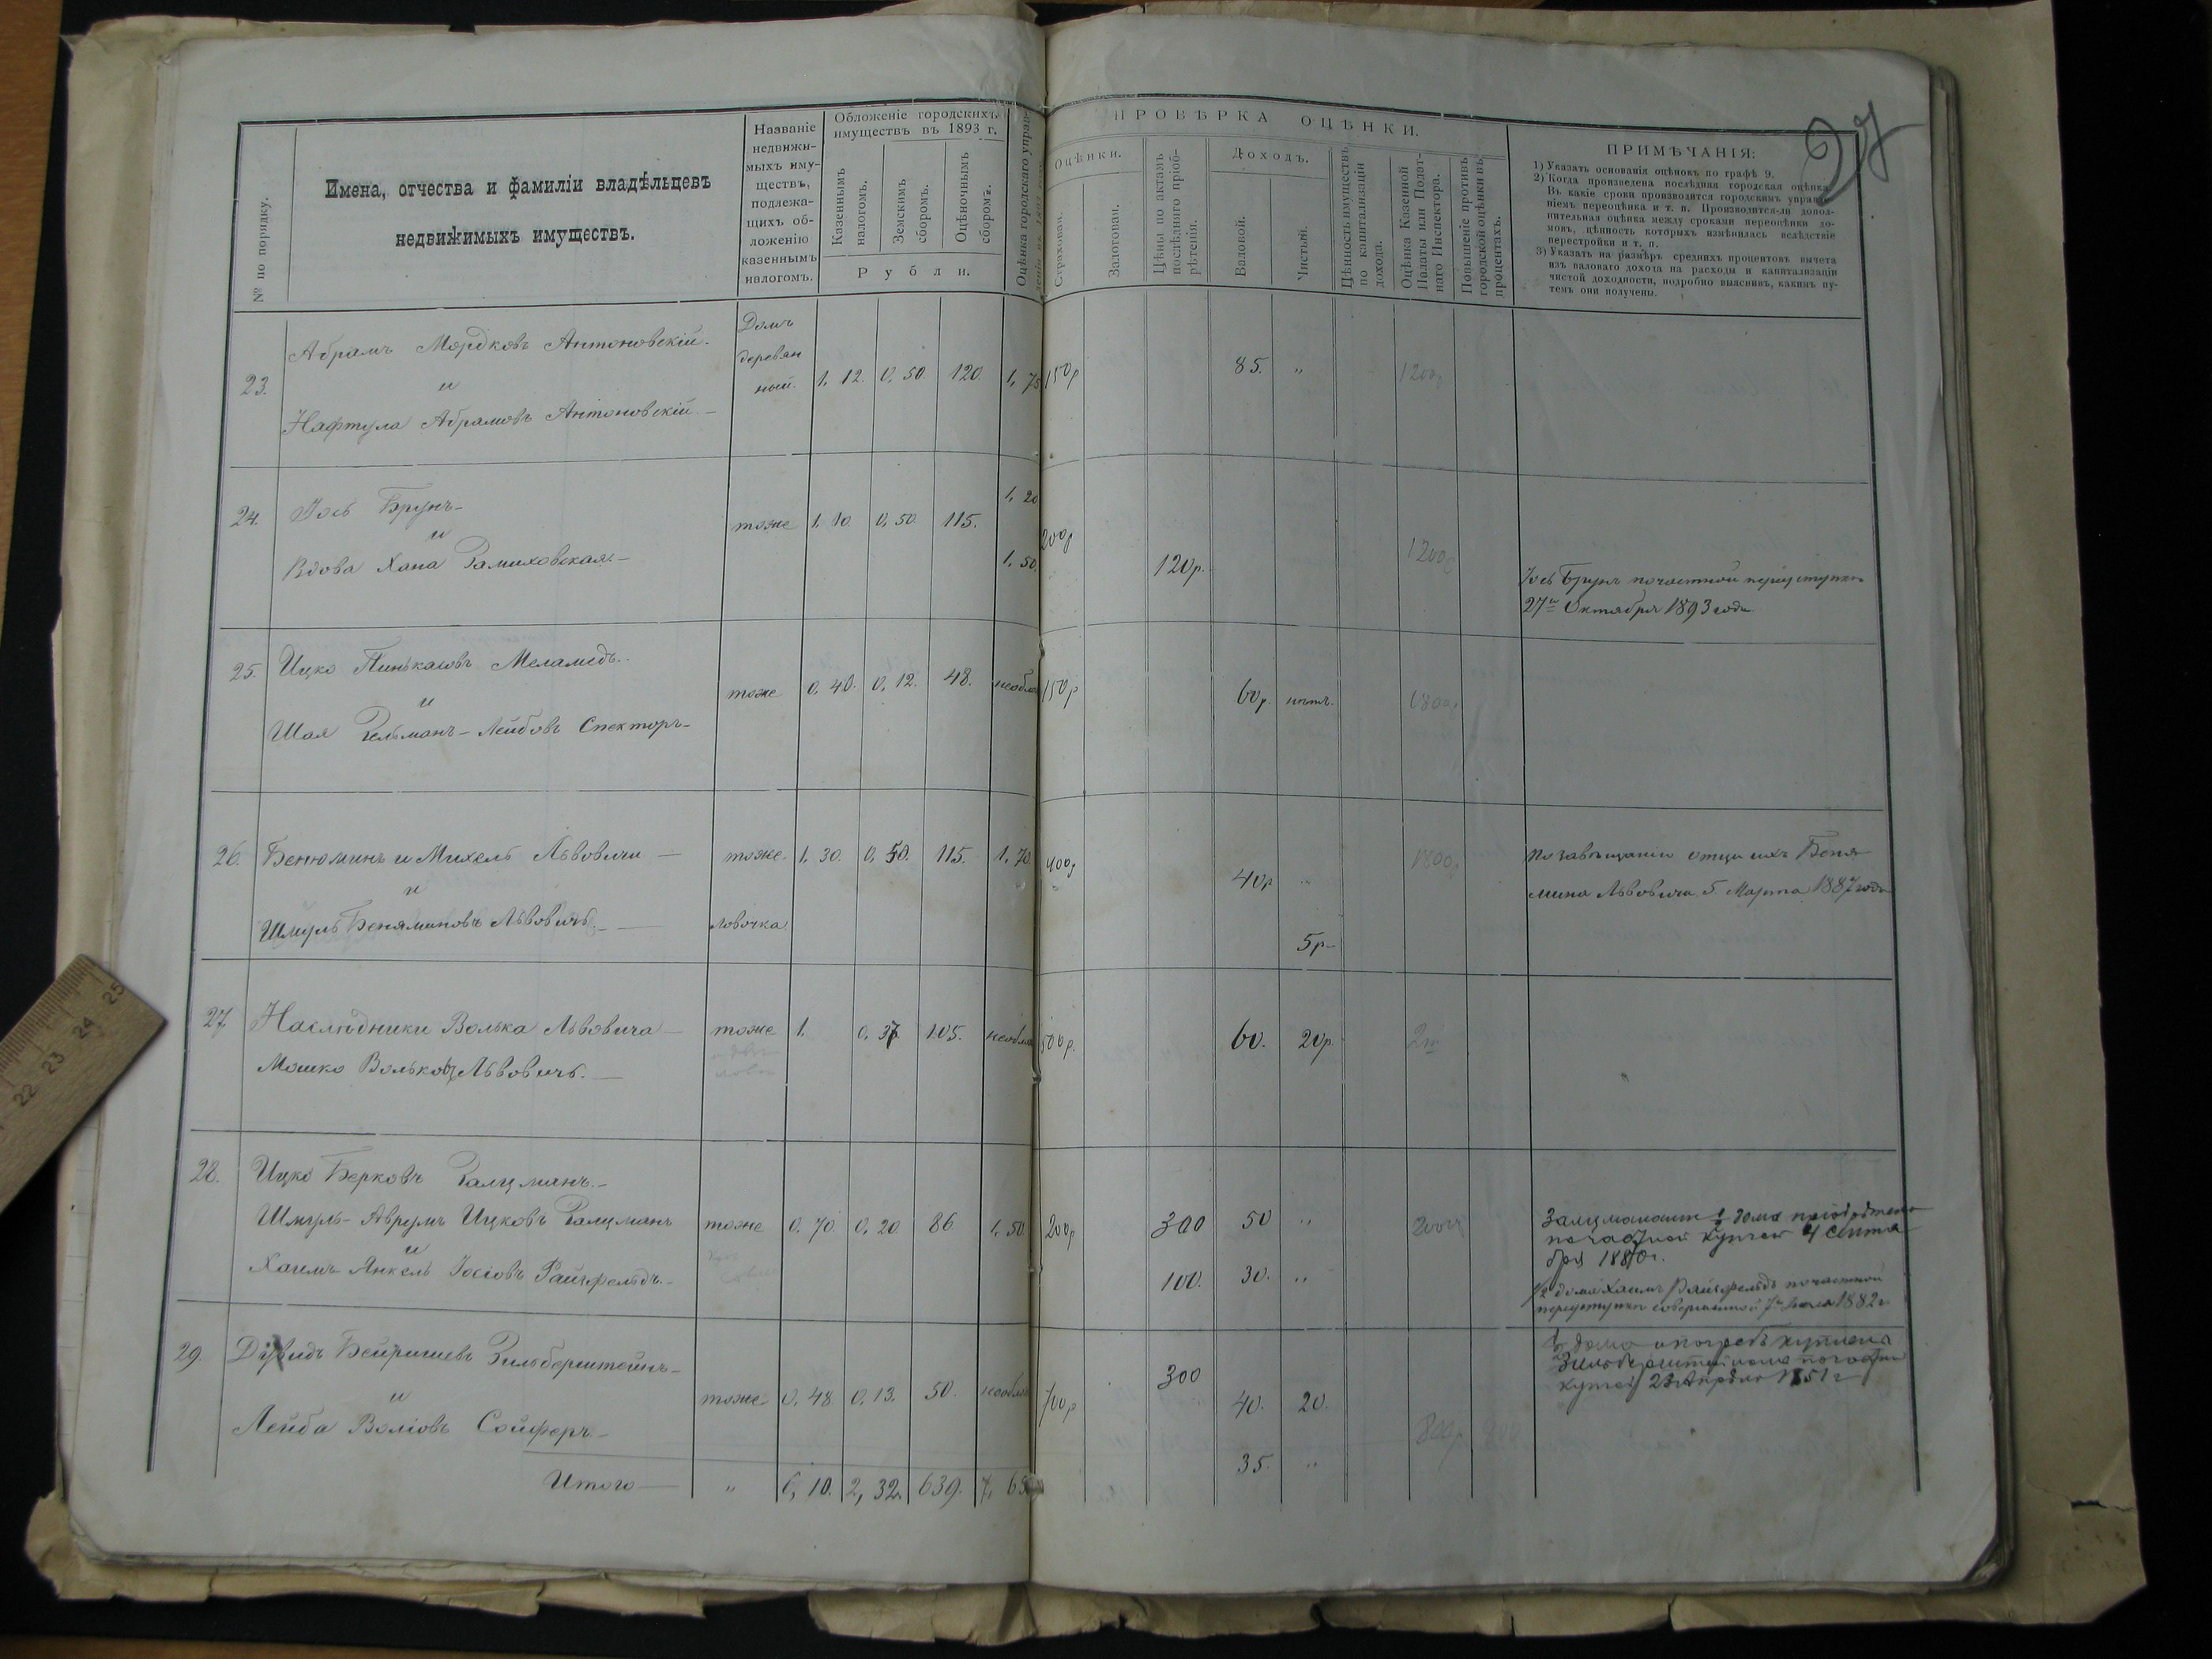 27
Имена, отчества и фамиліи владѣльцевъ
недвижимыхъ имуществъ.
№ по порядку.
Названіе
недвижи-
мыхъ иму-
ществъ,
подлежа-
щихъ об-
ложенію
казеннымъ
налогомъ.
Обложеніе городскихъ
имуществъ въ 1893 г.
Казеннымъ
налогомъ.
Земскимъ
сборомъ.
Оцѣночнымъ
сборомъ.
Рубли.
Оцѣнка городского управ-
ПРОВѢРКА ОЦѢНКИ.
Оцѣнки.
Страховая.
Залоговая.
Цѣны по актамъ
послѣдняго пріоб-
рѣтенія.
Доходъ.
Валовой.
Чистый.
Цѣнность имуществъ
по капитализаціи
дохода.
Оцѣнка Казенной
Палаты или Подат-
наго Инспектора.
Повышеніе противъ
городской оцѣнки въ
процентахъ.
ПРИМѢЧАНІЯ:
1) Указать основанія оцѣнокъ по графѣ 9.
2) Когда произведена послѣдняя городская оцѣнка.
Въ какіе сроки производится городскимъ управле-
ніемъ переоцѣнка и т. п. Производится-ли допол-
нительная оцѣнка между сроками переоцѣнки до-
мовъ, цѣнность которыхъ измѣнилась вслѣдствіе
перестройки и т. п.
3) Указать на размѣръ среднихъ процентовъ вычета
изъ валоваго дохода на расходы и капитализаціи
чистой доходности, подробно выяснивъ, какимъ пу-
темъ они получены.
23. Абрамъ Мордковъ Антоновскій.
и
Нафтула Абрамовъ Антоновскій
Домъ
деревян
ный. 1, 12. 0, 50. 120. 1, 75 150р 85. " 1200р
24. Іось Брунъ
и
Вдова Хана Замиховская.
тоже 1, 10. 0, 50. 115. 1, 20
1, 50. 200р 120р. 1200р
Іось Брунъ по частной переуступкѣ
27го Октября 1893 года
25. Ицко Пинькасовъ Меламедъ.
и
Шая Зельманъ-Лейбовъ Спекторъ
тоже 0, 40. 0, 12. 48. необло 150р 60р. нѣтъ.
26. Бенюминъ и Михель Львовичи
и
Шмуль Беняминовъ Львовичъ.
тоже 1, 30. 0, 50. 115. 1, 70. 400р 40р "
ловочка 5р
По завѣщанію отца ихъ Беня
мина Львовича 5 Марта 1887 года
27 Наслѣдники Волька Львовича
Мошко Вольковъ Львовичъ.
тоже 1. 0, 37. 105. необло 500р. 60. 20р.
28. Ицко Берковъ Залцманъ.
Шмуль-Аврумъ Ицковъ Залцманъ
и
Хаимъ Анкель Іосіовъ Райхфельдъ.
тоже 0, 70. 0, 20. 86 1, 50. 200р 300 50 "
100. 30. "
дома пріобрѣтено
по частной купчей 4 Сентя
бря 1880 г.
1/2 дома Хаимъ Райхфельдъ по частной
переуступкѣ совершенной 1882 г.
29. Дувидъ Бейришевъ Зильберштейнъ
и
Лейба Воліовъ Сойферъ
тоже 0, 48. 0, 13. 50. необло 700р 300 40. 20. 800р
35. "
дома и погребъ куплены
Зильберштейномъ по частной
купчей 23 Апрѣля 1851 г
Итого " 6, 10. 2, 32. 639. 7, 65
22 23 24 25